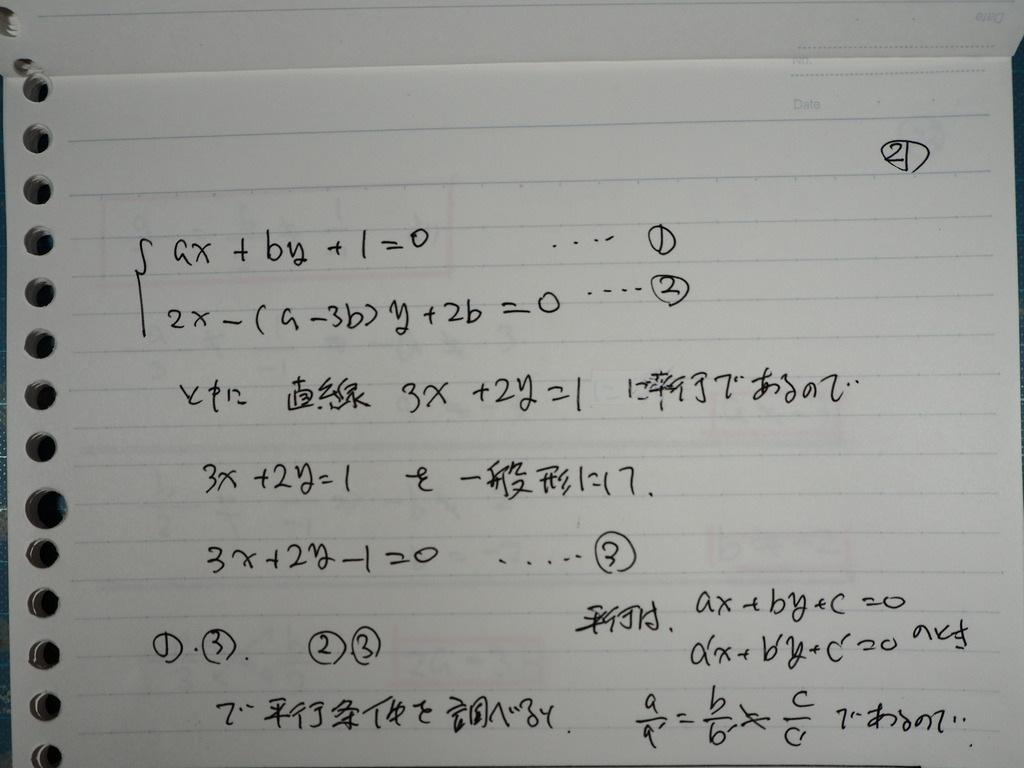 No.
Date
㉑
ax + by + 1 = 0 ····· ①
2x - (a - 3b) y + 2b = 0 ····· ②
ともに 直線 3x + 2y = 1 に平行であるので‥
3x + 2y = 1 を 一般形にして、
3x + 2y - 1 = 0 ······ ③
平行は、 ax + by + c = 0
a'x + b'y + c' = 0 のとき
①・③. ②③
で 平行条件を 調べると、 a/a' = b/b' ≠ c/c' であるので‥